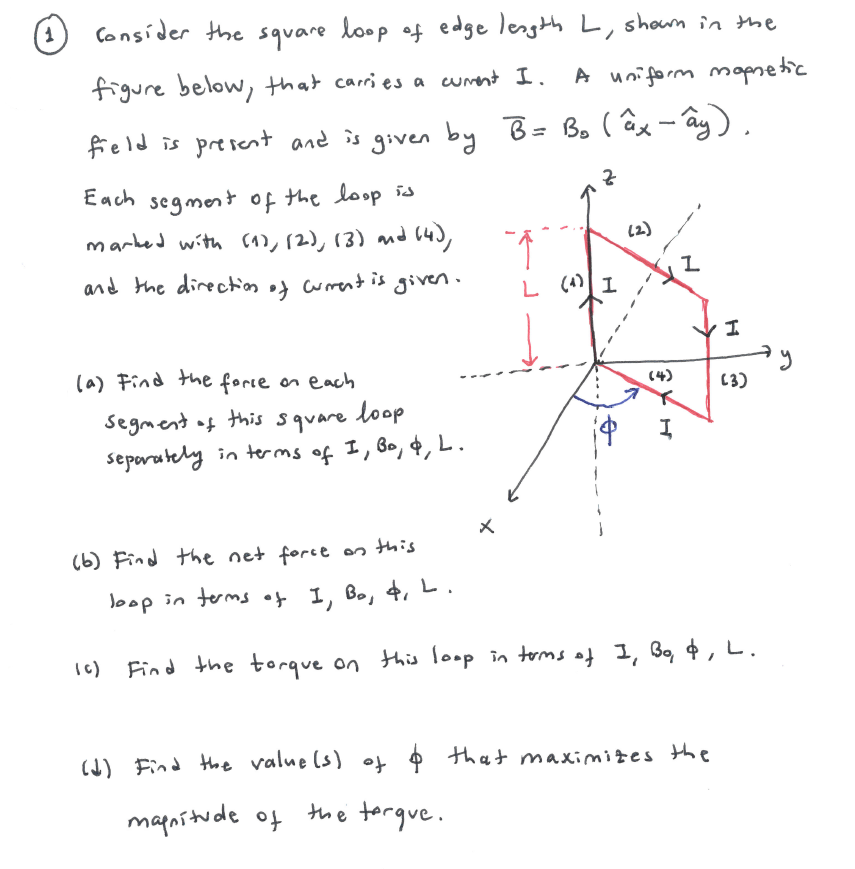 ① Consider the square loop of edge length L, shown in the
figure below, that carries a current I. A uniform magnetic
field is present and is given by B̅ = B₀ (âx − ây).
Each segment of the loop is
marked with (1), (2), (3) and (4),
and the direction of current is given.
z
(2)
I
L
(1)
I
I
y
(4)
(3)
ϕ
I
x
(a) Find the force on each
segment of this square loop
separately in terms of I, B₀, ϕ, L.
(b) Find the net force on this
loop in terms of I, B₀, ϕ, L.
(c) Find the torque on this loop in terms of I, B₀, ϕ, L.
(d) Find the value(s) of ϕ that maximizes the
magnitude of the torque.